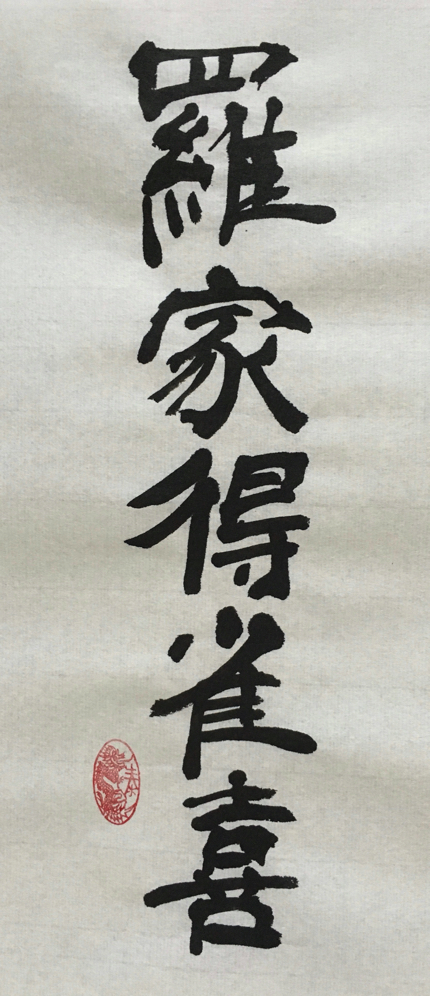 羅家得雀喜